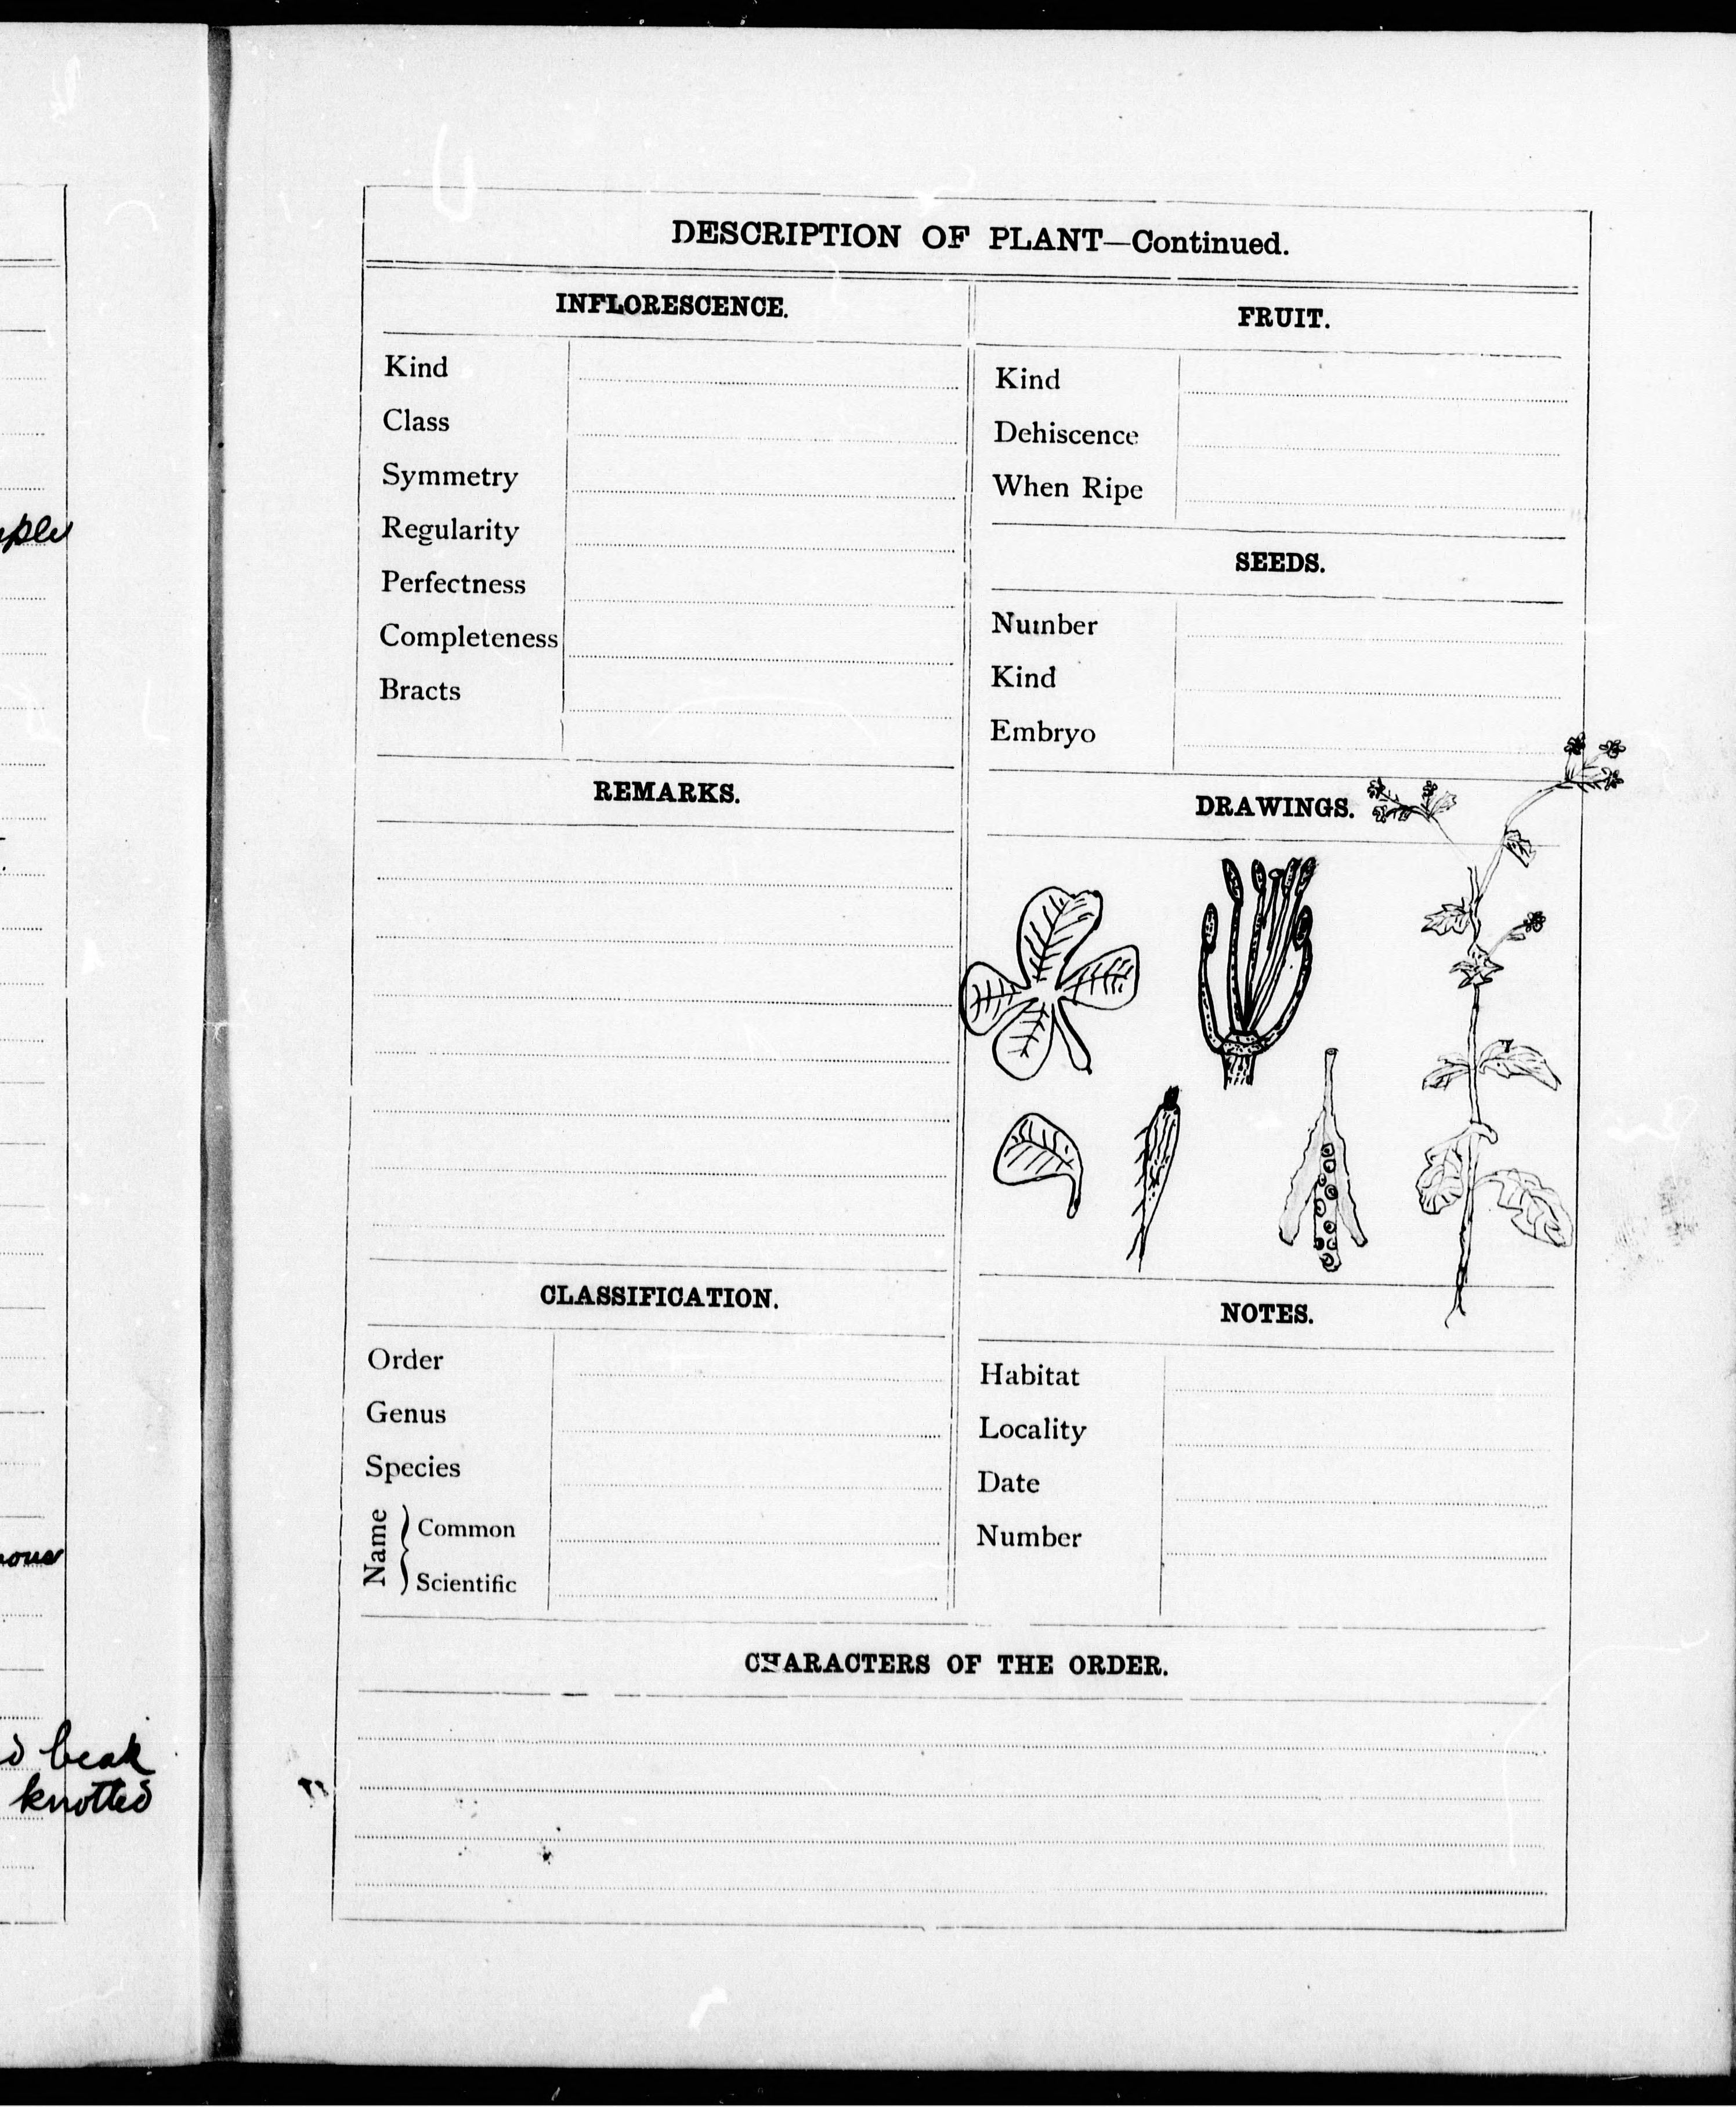 DESCRIPTION OF PLANT—Continued.
INFLORESCENCE.
Kind
Class
Symmetry
Regularity
Perfectness
Completeness
Bracts
REMARKS.
CLASSIFICATION.
Order
Genus
Species
Name
Common
Scientific
FRUIT.
Kind
Dehiscence
When Ripe
SEEDS.
Number
Kind
Embryo
DRAWINGS.
NOTES.
Habitat
Locality
Date
Number
CHARACTERS OF THE ORDER.
beak
knotted